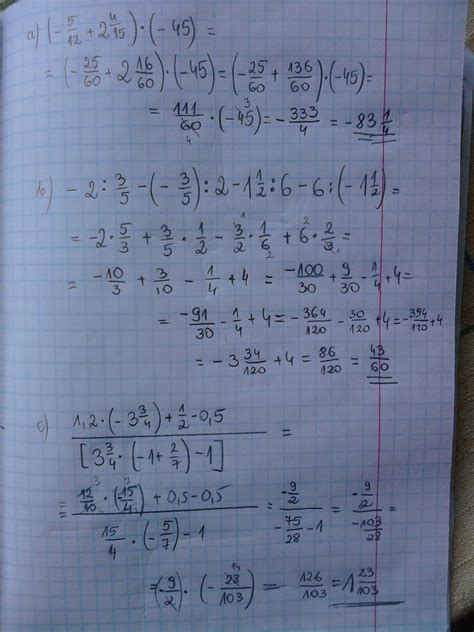 a) (-5/12 + 2 4/15) · (-45) =
= (-25/60 + 2 16/60) · (-45) = (-25/60 + 136/60) · (-45) =
= 111/60 4 · (-45) 3 = -333/4 = -83 1/4
b) -2 : 3/5 - (-3/5) : 2 - 1 1/2 : 6 - 6 : (-1 1/2) =
= -2 · 5/3 + 3/5 · 1/2 - 3/2 1 · 1/6 2 + 6 2 · 2/3 1 =
= -10/3 + 3/10 - 1/4 + 4 = -100/30 + 9/30 - 1/4 + 4 =
= -91/30 - 1/4 + 4 = -364/120 - 30/120 + 4 = -394/120 + 4
= -3 34/120 + 4 = 86/120 = 43/60
c) 1,2 · (-3 3/4) + 1/2 - 0,5 / [3 3/4 · (-1 + 2/7) - 1] =
= 12/10 3 · (-15/4) 3 + 0,5 - 0,5 / 15/4 · (-5/7) - 1 = -9/2 / -75/28 - 1 = -9/2 / -103/28 =
= (-9/2) · (-28/103) 14 = 126/103 = 1 23/103